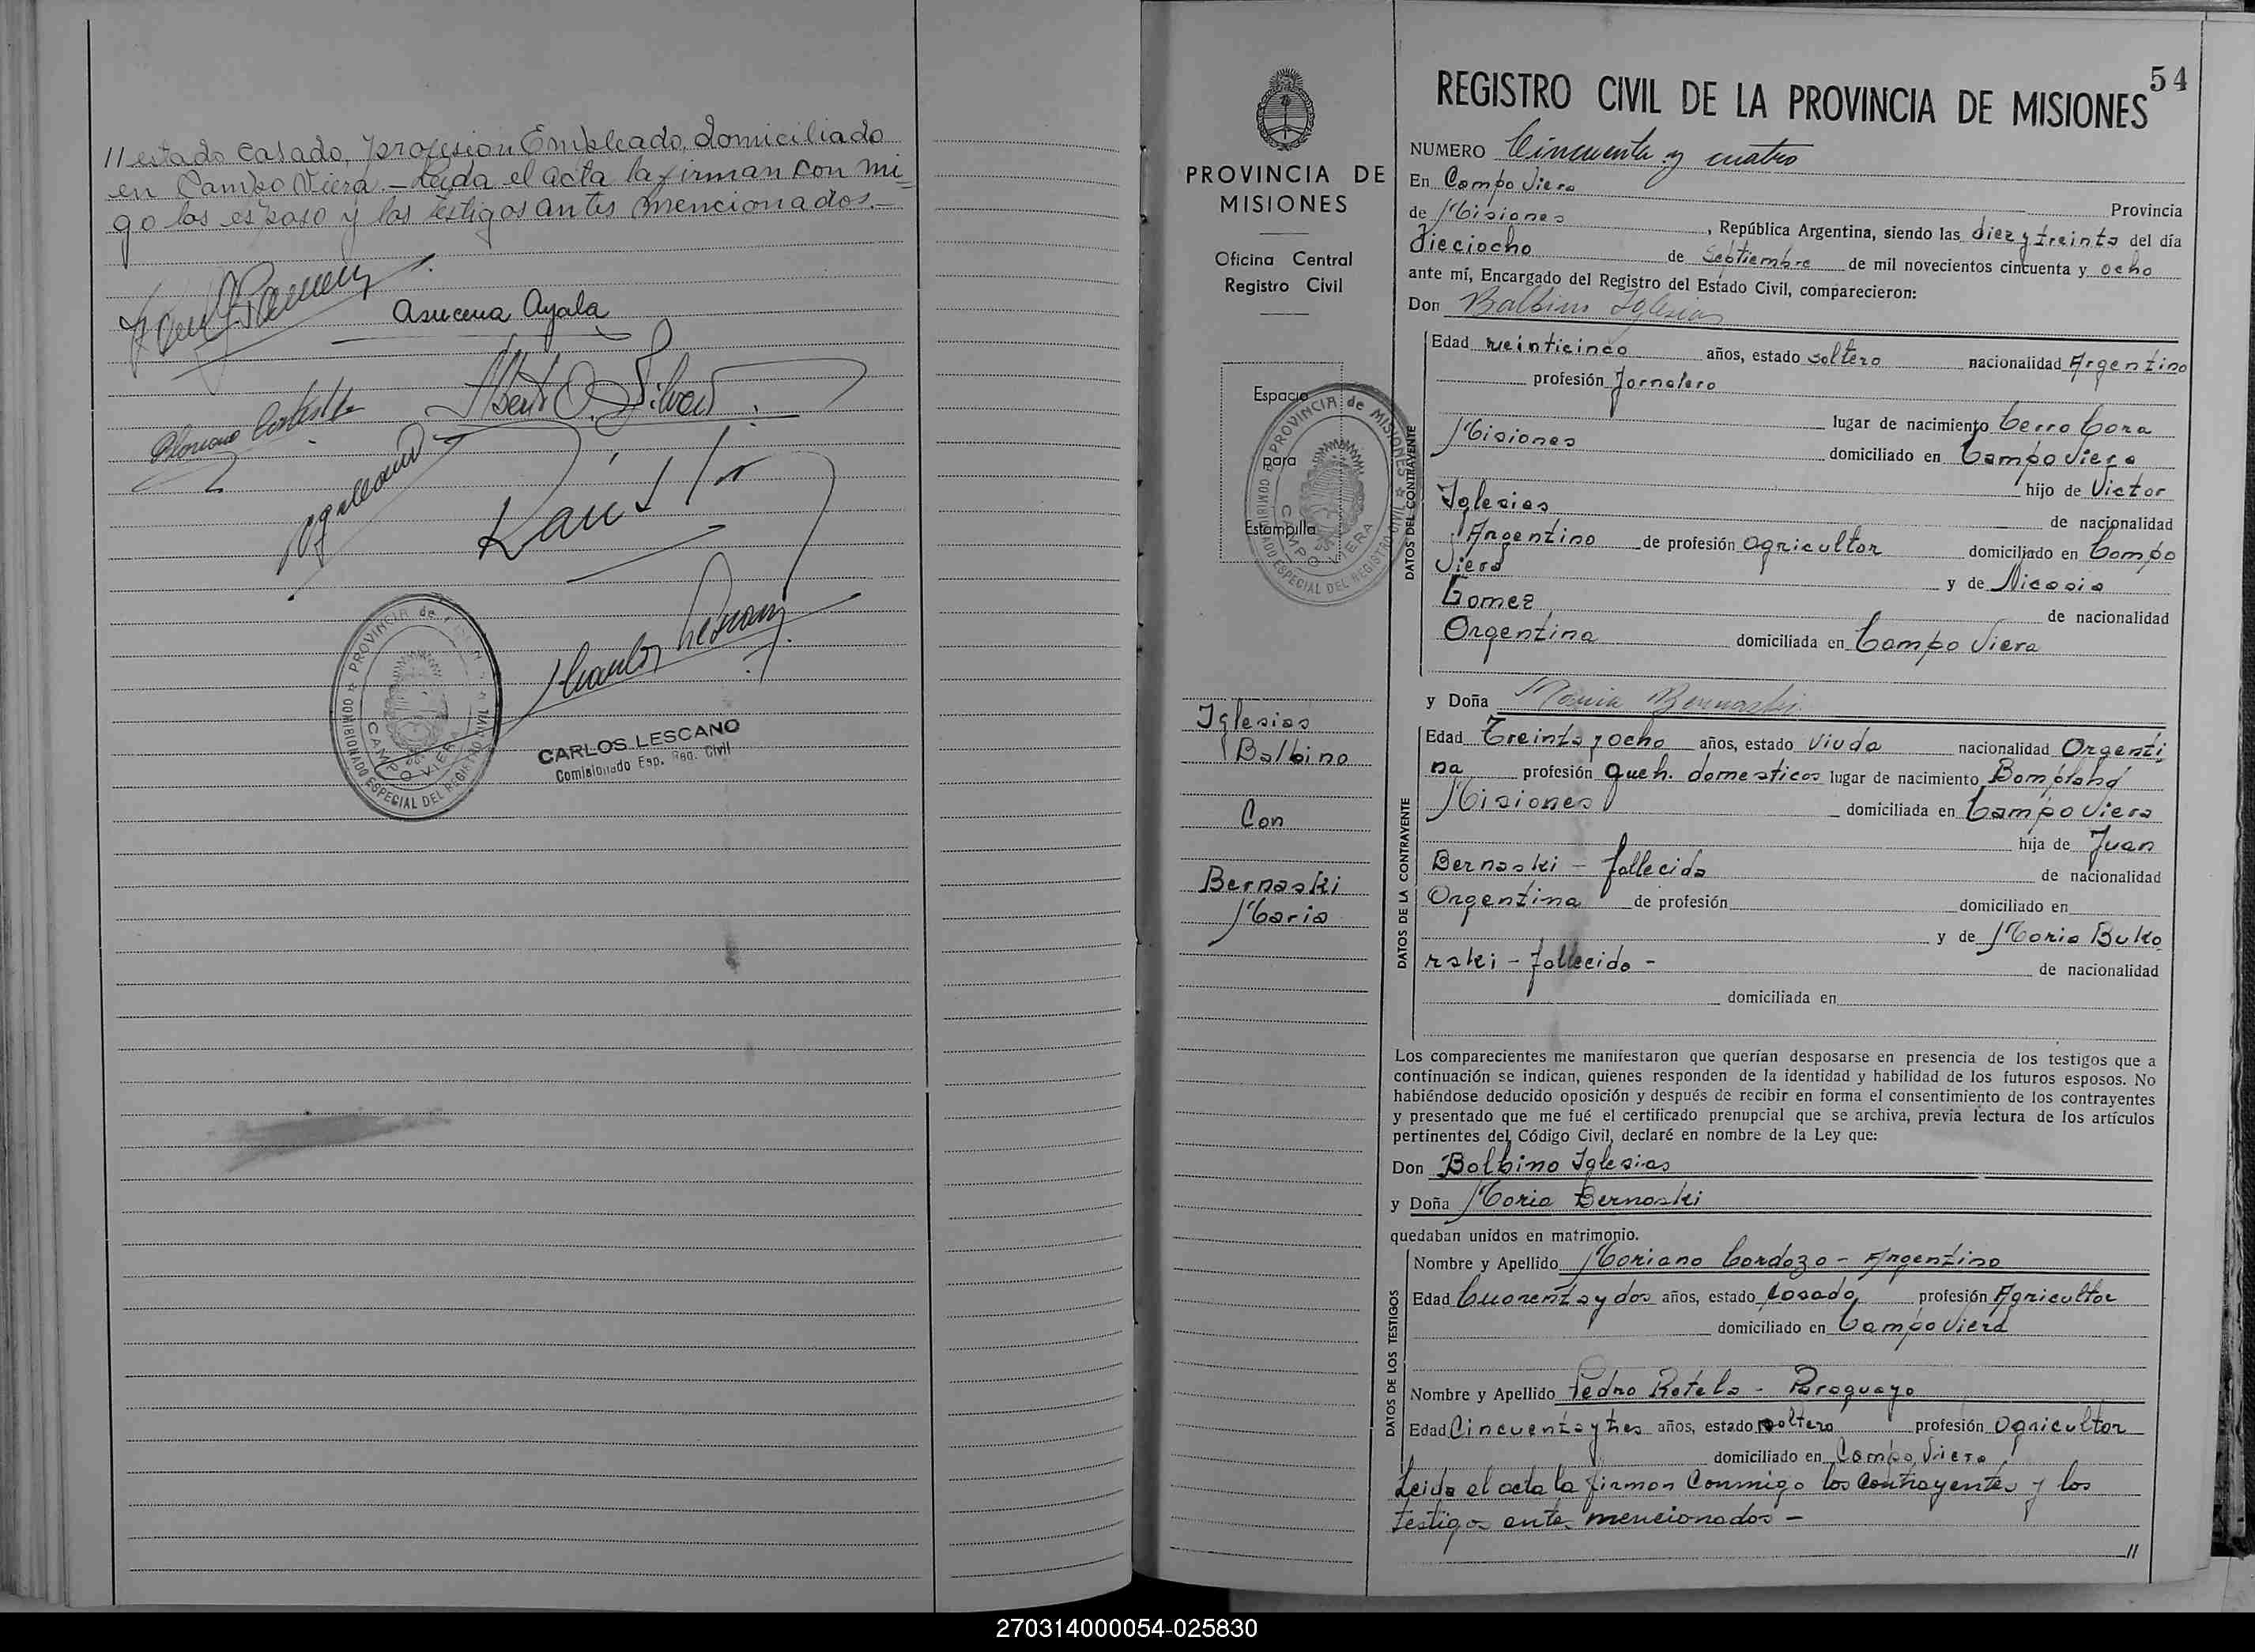 // estado casado, profesión Empleado, domiciliado
en Campo Viera. - Leída el acta la firman con mi=
go los esposo y los testigos antes mencionados. -
Asucena Ayala
PROVINCIA de
CAMPO VIERA
COMISIONADO ESPECIAL DEL REGISTRO CIVIL
CARLOS LESCANO
Comisionado Esp. Reg. Civil
PROVINCIA DE
MISIONES
Oficina Central
Registro Civil
Espacio
para
Estampilla
PROVINCIA de MISIONES
CAMPO VIERA
COMISIONADO ESPECIAL DEL REGISTRO CIVIL
Iglesias
Balbino
Con
Bernaski
Maria
54
REGISTRO CIVIL DE LA PROVINCIA DE MISIONES
NUMERO Cincuenta y cuatro
En Campo Viera
Provincia
de Misiones , República Argentina, siendo las diez y treinta del día
Dieciocho de Septiembre de mil novecientos cincuenta y ocho
ante mí, Encargado del Registro del Estado Civil, comparecieron:
Don Balbino Iglesias
DATOS DEL CONTRAYENTE
Edad veinticinco años, estado soltero nacionalidad Argentino
profesión Jornalero
lugar de nacimiento Cerro Cora
Misiones domiciliado en Campo Viera
hijo de Victor
Iglesias de nacionalidad
Argentino de profesión agricultor domiciliado en Campo
Viera y de Nicasia
Gomez de nacionalidad
Argentina domiciliada en Campo Viera
y Doña Maria Bernaski
DATOS DE LA CONTRAYENTE
Edad Treinta y ocho años, estado Viuda nacionalidad Argenti
na profesión queh. domesticos lugar de nacimiento Bompland
Misiones domiciliada en Campo Viera
hija de Juan
Bernaski - fallecido de nacionalidad
Argentina de profesión domiciliado en
y de Maria Buko
rski - fallecida - de nacionalidad
domiciliada en
Los comparecientes me manifestaron que querían desposarse en presencia de los testigos que a
continuación se indican, quienes responden de la identidad y habilidad de los futuros esposos. No
habiéndose deducido oposición y después de recibir en forma el consentimiento de los contrayentes
y presentado que me fué el certificado prenupcial que se archiva, previa lectura de los artículos
pertinentes del Código Civil, declaré en nombre de la Ley que:
Don Balbino Iglesias
y Doña Maria Bernaski
quedaban unidos en matrimonio.
DATOS DE LOS TESTIGOS
Nombre y Apellido Mariano Cardozo - Argentino
Edad Cuarenta y dos años, estado Casado profesión Agricultor
domiciliado en Campo Viera
Nombre y Apellido Pedro Rotela - Paraguayo
Edad Cincuenta y tres años, estado soltero profesión agricultor
domiciliado en Campo Viera
Leida el acta la firman conmigo los contrayentes y los
testigos antes mencionados -
//
270314000054-025830